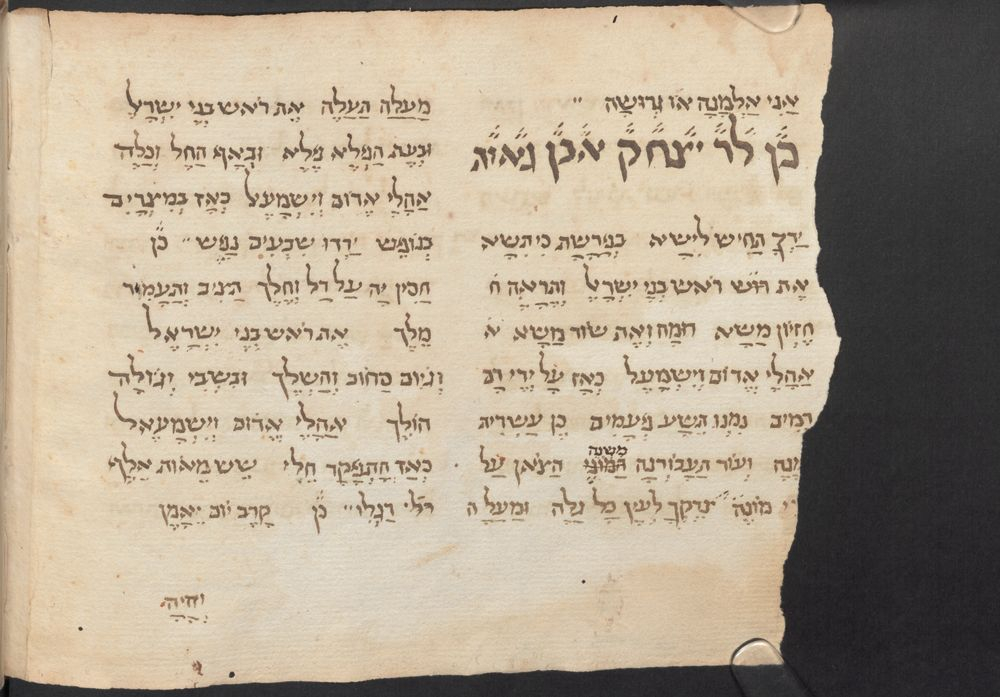 אני אלמנה או גרושה
כן לר יצחק אבן גיאת
ידך תחיש לישיא בפרשת כי תשא
את ראש בני ישראל ותראה ח
חזיון משא דומה ואת שוד משא א
אהלי אדום וישמעאל כאז על ידי רם
רמים נמנו תשע פעמים כן עשרית
מנה ועוד תעבורנה משנה הצאן על
ידי מונה לעין כל נלה ומעלה
מעלה תעלה את ראש בני ישראל
ובעת הפלא פלא ובאף החל וכלה
אהלי אדום וישמעאל כאז במצרים
בנופש ירדו שבעים נפש כן
חסין יה על דל וחלך תיטיב ותעמיד
מלך את ראש בני ישראל
והשלך ובשבי וגולה
הולך אהלי אדום וישמעאל
כאז חלי שש מאות אלף
רגלי רגלו כן קרב יום יאמן
והיה